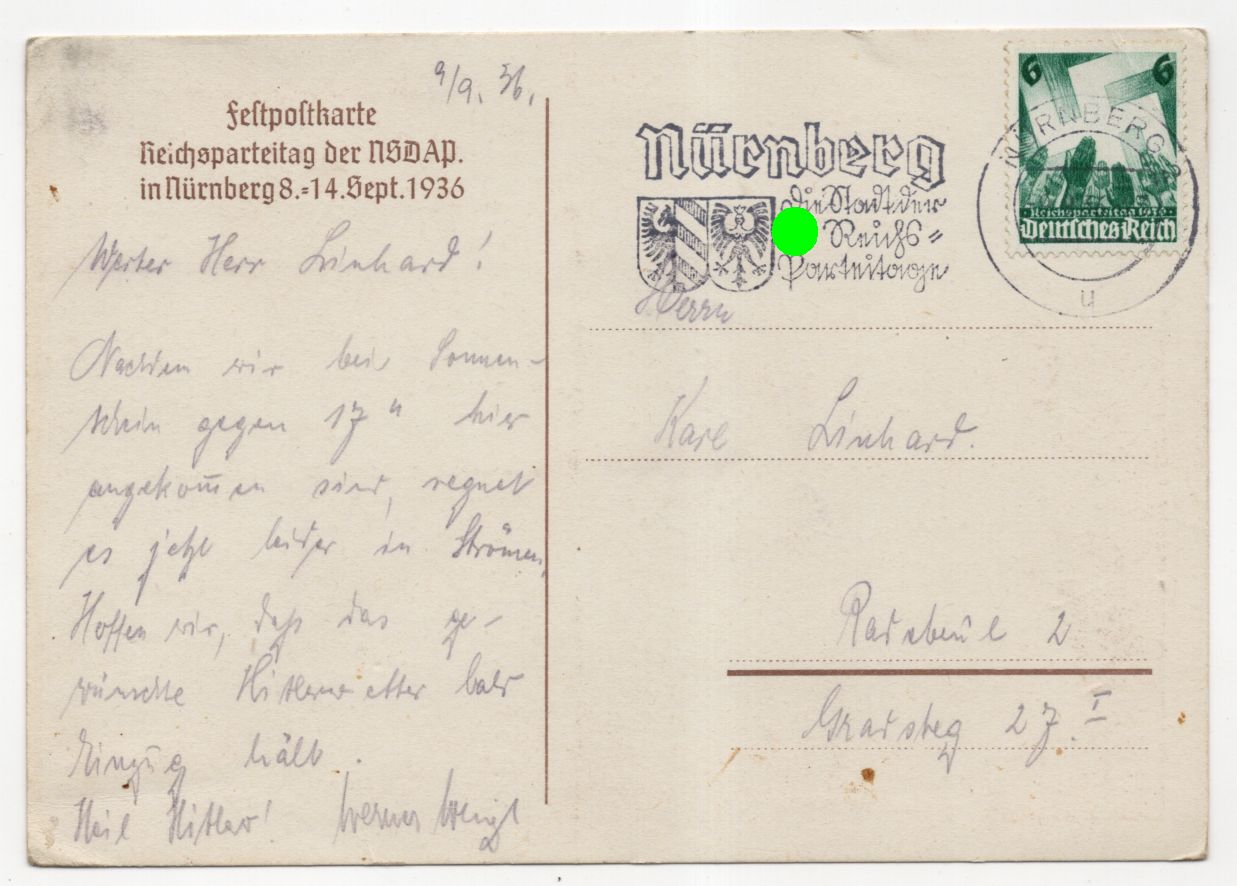 9/9. 36.
Festpostkarte
Reichsparteitag der NSDAP.
in Nürnberg 8.-14. Sept. 1936
Werter Herr Linhard!
Nachdem wir bei Sonnen-
schein gegen 17 hier
angekom̅en sind, regnet
es jetzt leider in Strömen,
Hoffen wir, daß das ge-
wünschte Hitlerwetter bald
Einzug hält.
Heil Hitler! Werner
Nürnberg
die Stadt der
Reichs-
Parteitage
NÜRNBERG 2
u
6 6
Reichsparteitag 1936
Deutsches Reich
Herrn
Karl Linhard.
Radebeul 2
Gradsteg 27 I